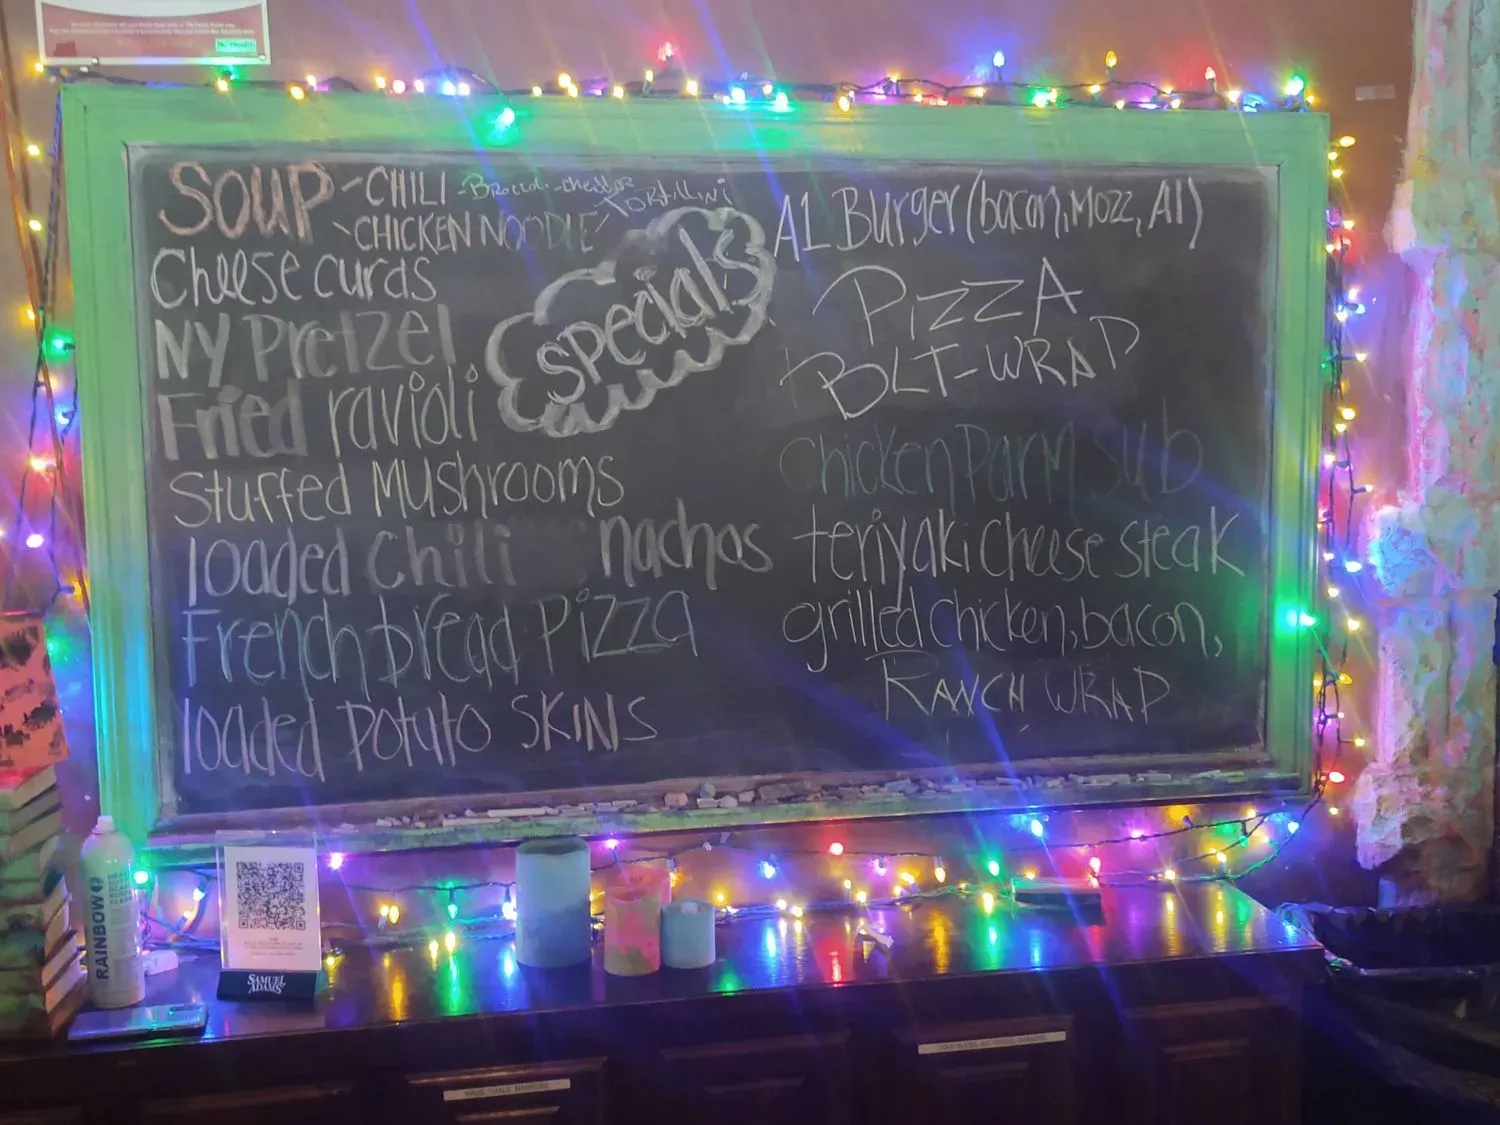 SOUP -CHILI -Broccoli-cheddar
-CHICKEN NOODLE -TORTILLINI
Cheese curds
NY Pretzel
Fried ravioli
Stuffed Mushrooms
loaded chili nachos
French bread Pizza
loaded Potato SKINS
Specials
A1 Burger (bacon, Mozz, A1)
PIZZA
BLT-WRAP
Chicken Parm sub
teriyaki cheese steak
grilled chicken, bacon,
RANCH WRAP
RAINBOW
SAMUEL
ADAMS